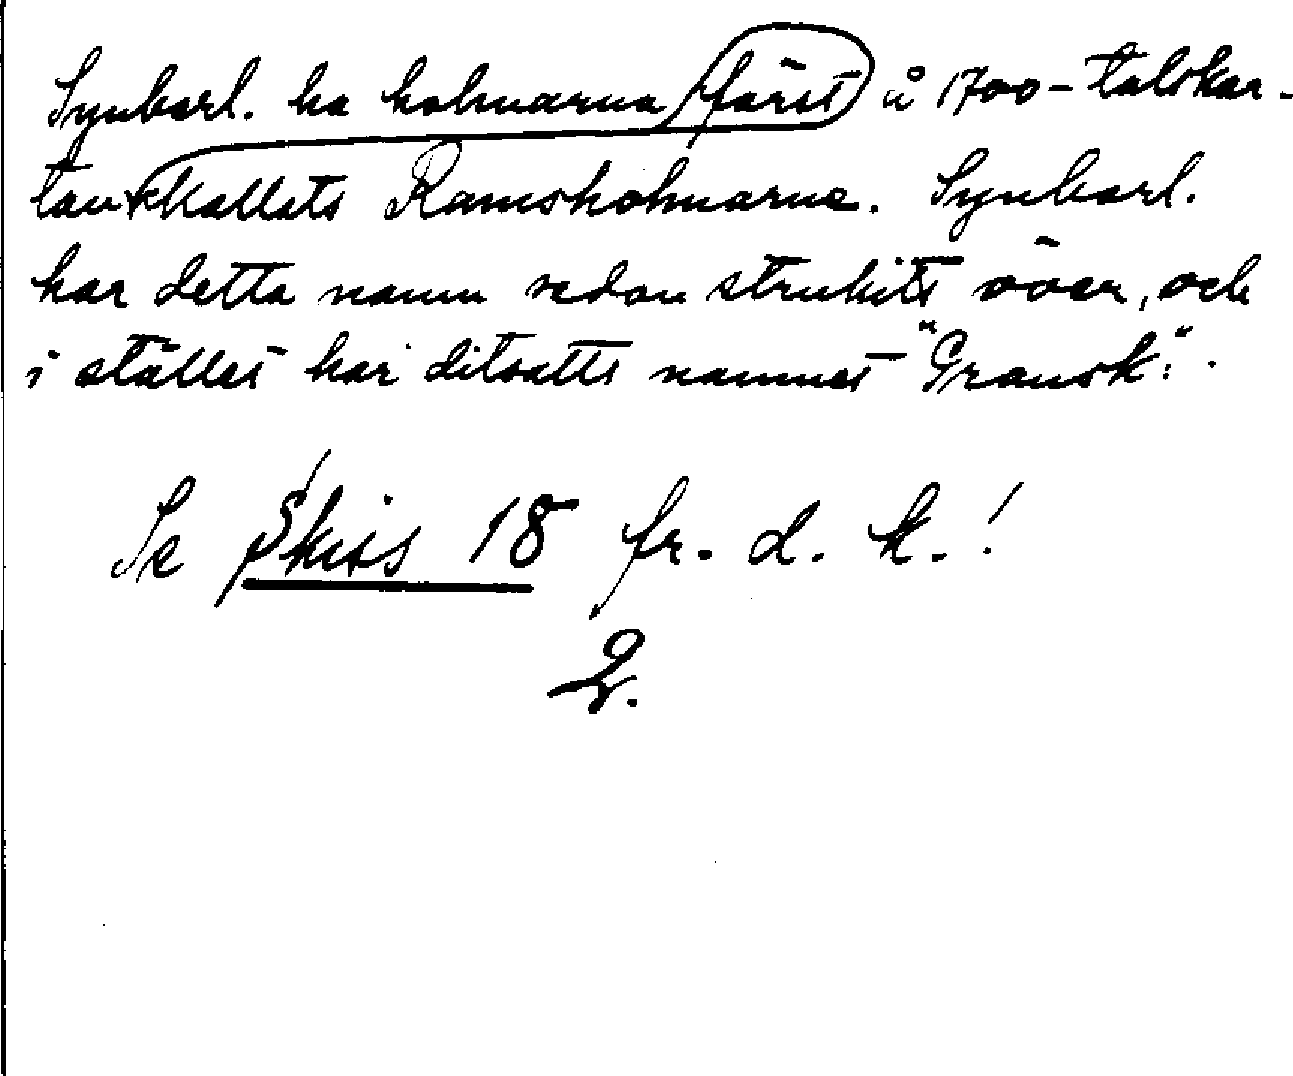 Synbarl. ha holmarna först å 1700-talskar-
tan kallats Ramsholmarne. Synbarl.
har detta namn sedan strukits över, och
i stället har ditsatts namnet "Gransk:".
Se Skiss 18 fr. d. k.!
2.